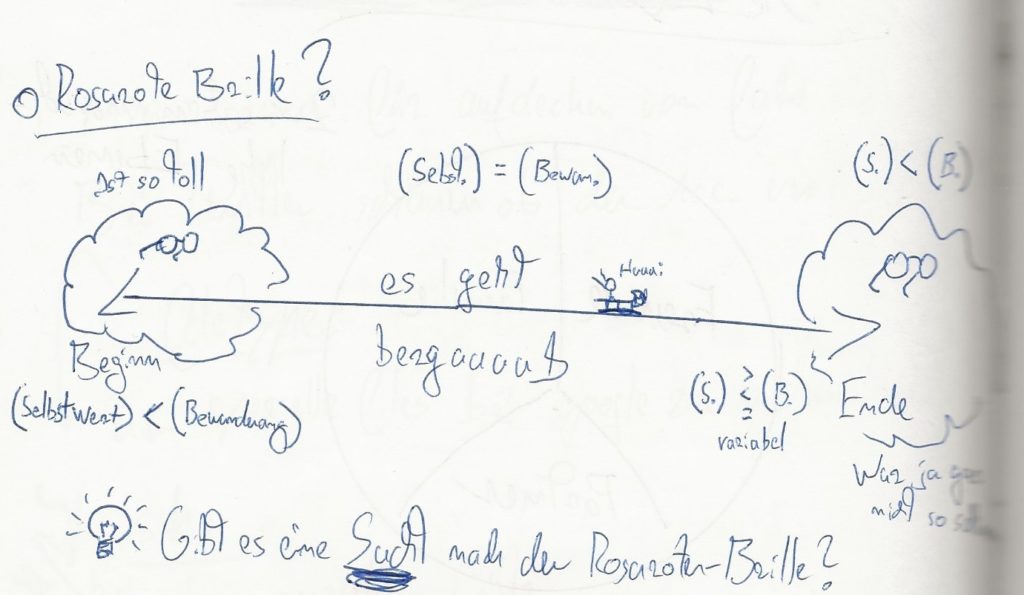 Rosarote Brille?
Ist so toll
(Selbst.) = (Bewun.)
(S.) < (B.)
es geht
Huuui
bergauuuuf
Beginn
(Selbstwert) < (Bewunderung)
(S.) > < = (B.)
variabel
Ende
War ja gar
nicht so
Gibt es eine Sucht nach der Rosaroten-Brille?